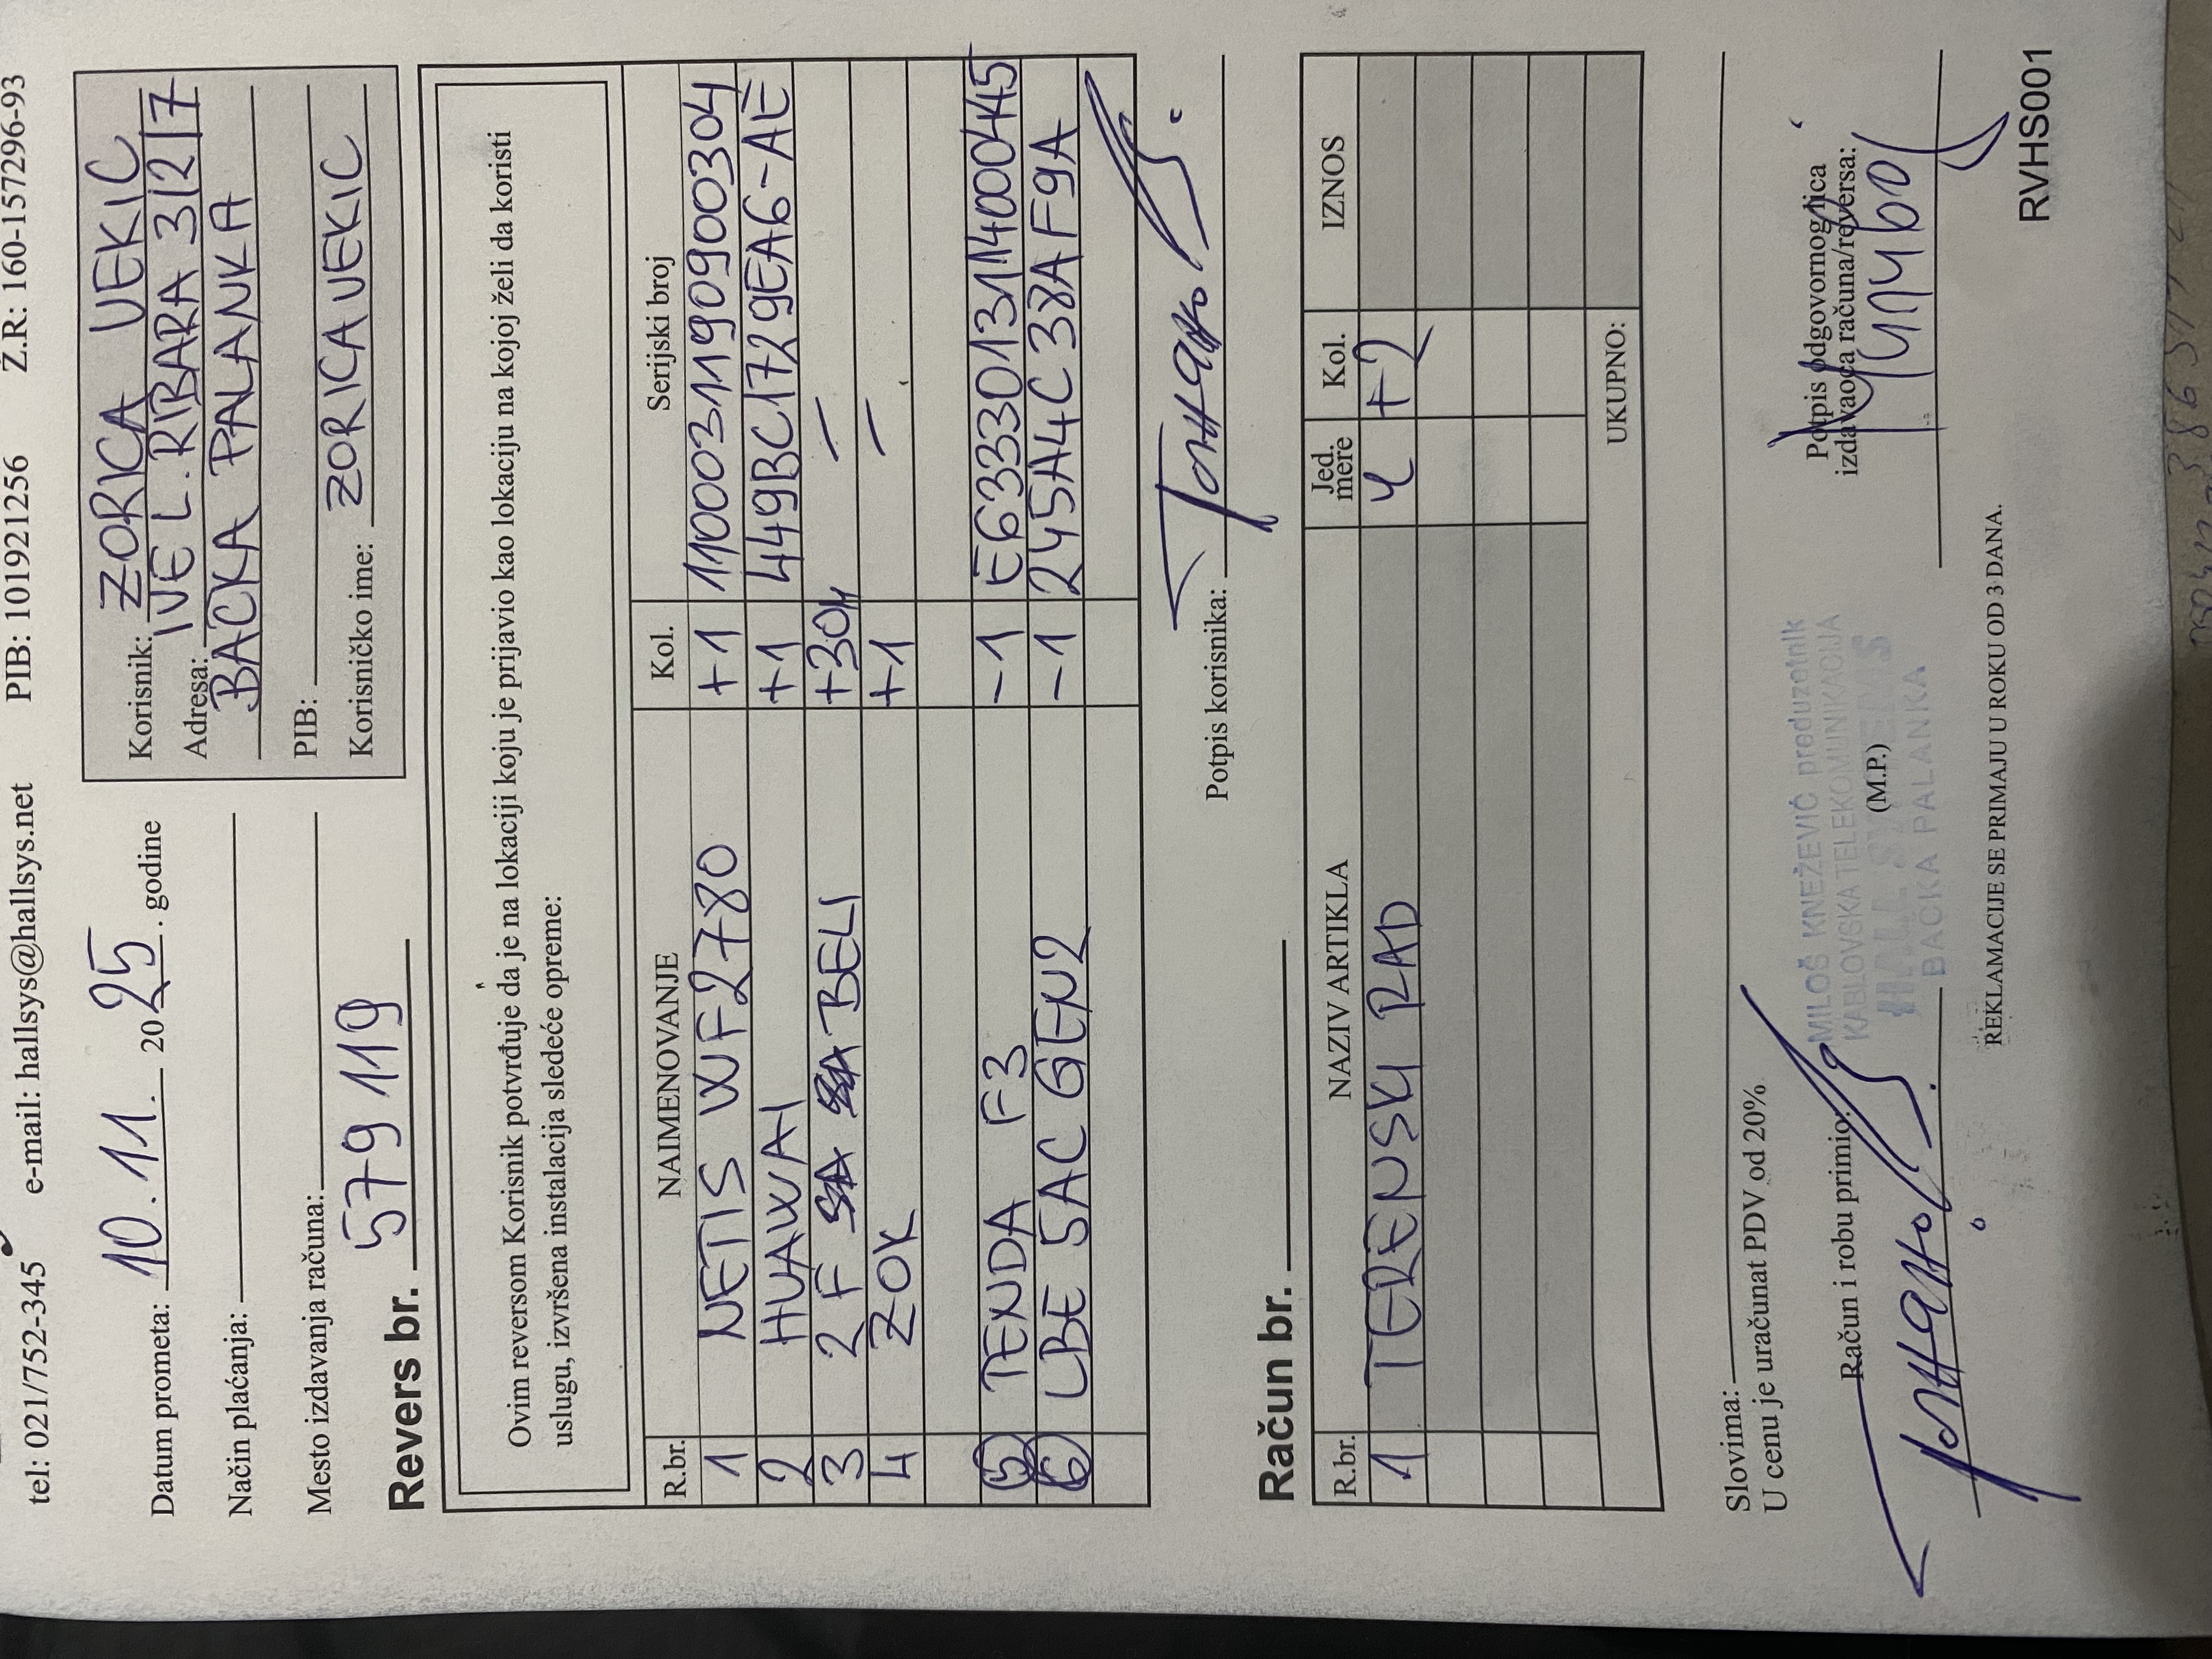 tel: 021/752-345 e-mail: hallsys@hallsys.net PIB: 101921256 Ž.R: 160-157296-93
Datum prometa: 10.11. 2025. godine
Način plaćanja:
Mesto izdavanja računa:
Korisnik: ZORICA VEKIC
Adresa: VEL. RIBARA 3/2/7
BACKA PALANKA
PIB:
Korisničko ime: ZORICA VEKIC
Revers br. 579 119
Ovim reversom Korisnik potvrđuje da je na lokaciji koju je prijavio kao lokaciju na kojoj želi da koristi
uslugu, izvršena instalacija sledeće opreme:
R.br. NAIMENOVANJE Kol. Serijski broj
1 NETIS WF2780 +1 1100031190900304
2 HUAWAI +1 449BC1729EA6-AE
3 2F BELI +30m —
4 ZOK +1 —
5 TENDA F3 -1 E6333013114000445
6 LBE 5AC GEN2 -1 245A4C38AF9A
Potpis korisnika:
Račun br.
R.br. NAZIV ARTIKLA Jed. mere Kol. IZNOS
1 TERENSKI RAD Č +2
UKUPNO:
Slovima:
U cenu je uračunat PDV od 20%
Račun i robu primio:
MILOŠ KNEŽEVIĆ preduzetnik
KABLOVSKA TELEKOMUNIKACIJA
HALL SYSTEMS
BAČKA PALANKA
(M.P.)
Potpis odgovornog lica
izdavaoca računa/reversa:
REKLAMACIJE SE PRIMAJU U ROKU OD 3 DANA.
RVHS001